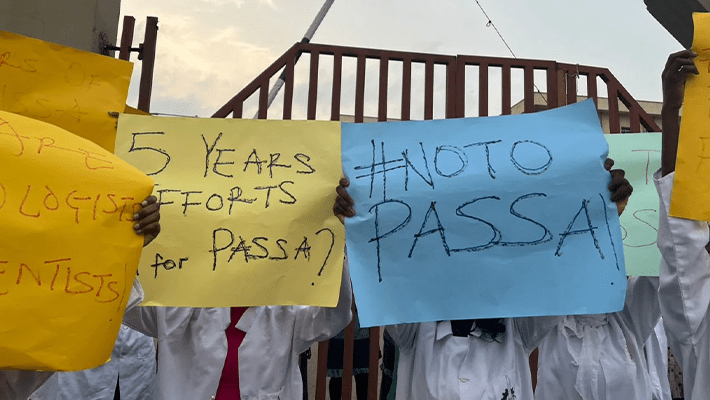 RS OF
ARE
OLOGIST
ENTISTS!
5 YEARS
EFFORTS
for PASSA?
#NO TO
PASSA!